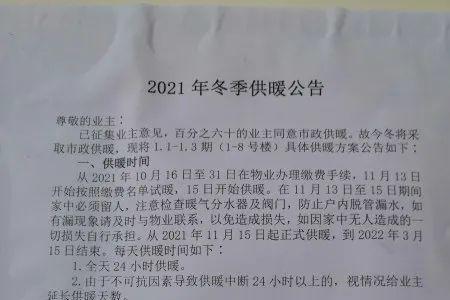 2021 年冬季供暖公告
尊敬的业主：
已征集业主意见，百分之六十的业主同意市政供暖。故今冬将采
取市政供暖，现将 1.1-1.3 期（1-8 号楼）具体供暖方案公告如下：
一、供暖时间
从 2021 年 10 月 16 日至 31 日在物业办理缴费手续，11 月 13 日
开始按照缴费名单试暖，15 日开始供暖。在 11 月 13 日至 15 日期间
家中必须留人，注意检查暖气分水器及阀门，防止户内脱管漏水，如
有漏现象请及时与物业联系，以免造成损失，如因家中无人造成的一
切损失自行承担。从 2021 年 11 月 15 日起正式供暖，到 2022 年 3 月
15 日结束。每天供暖时间如下：
1. 全天 24 小时供暖。
2. 由于不可抗因素导致供暖中断 24 小时以上的，视情况给业主
延长供暖天数。